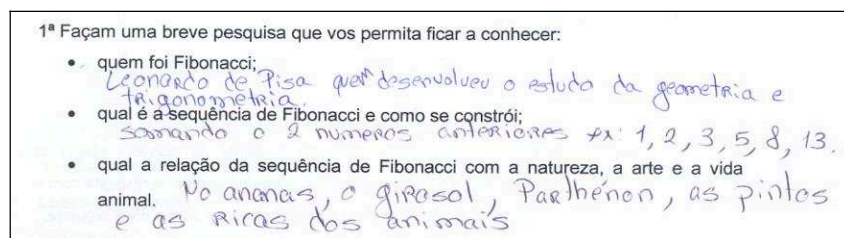 1ª Façam uma breve pesquisa que vos permita ficar a conhecer:
• quem foi Fibonacci;
Leonardo de Pisa quem desenvolveu o estudo da geometria e
trigonometria.
• qual é a sequência de Fibonacci e como se constrói;
somando o 2 numeros anteriores ex: 1, 2, 3, 5, 8, 13.
• qual a relação da sequência de Fibonacci com a natureza, a arte e a vida
animal. No ananas, o girosol, Parthénon, as pintas
e as ricas dos animais